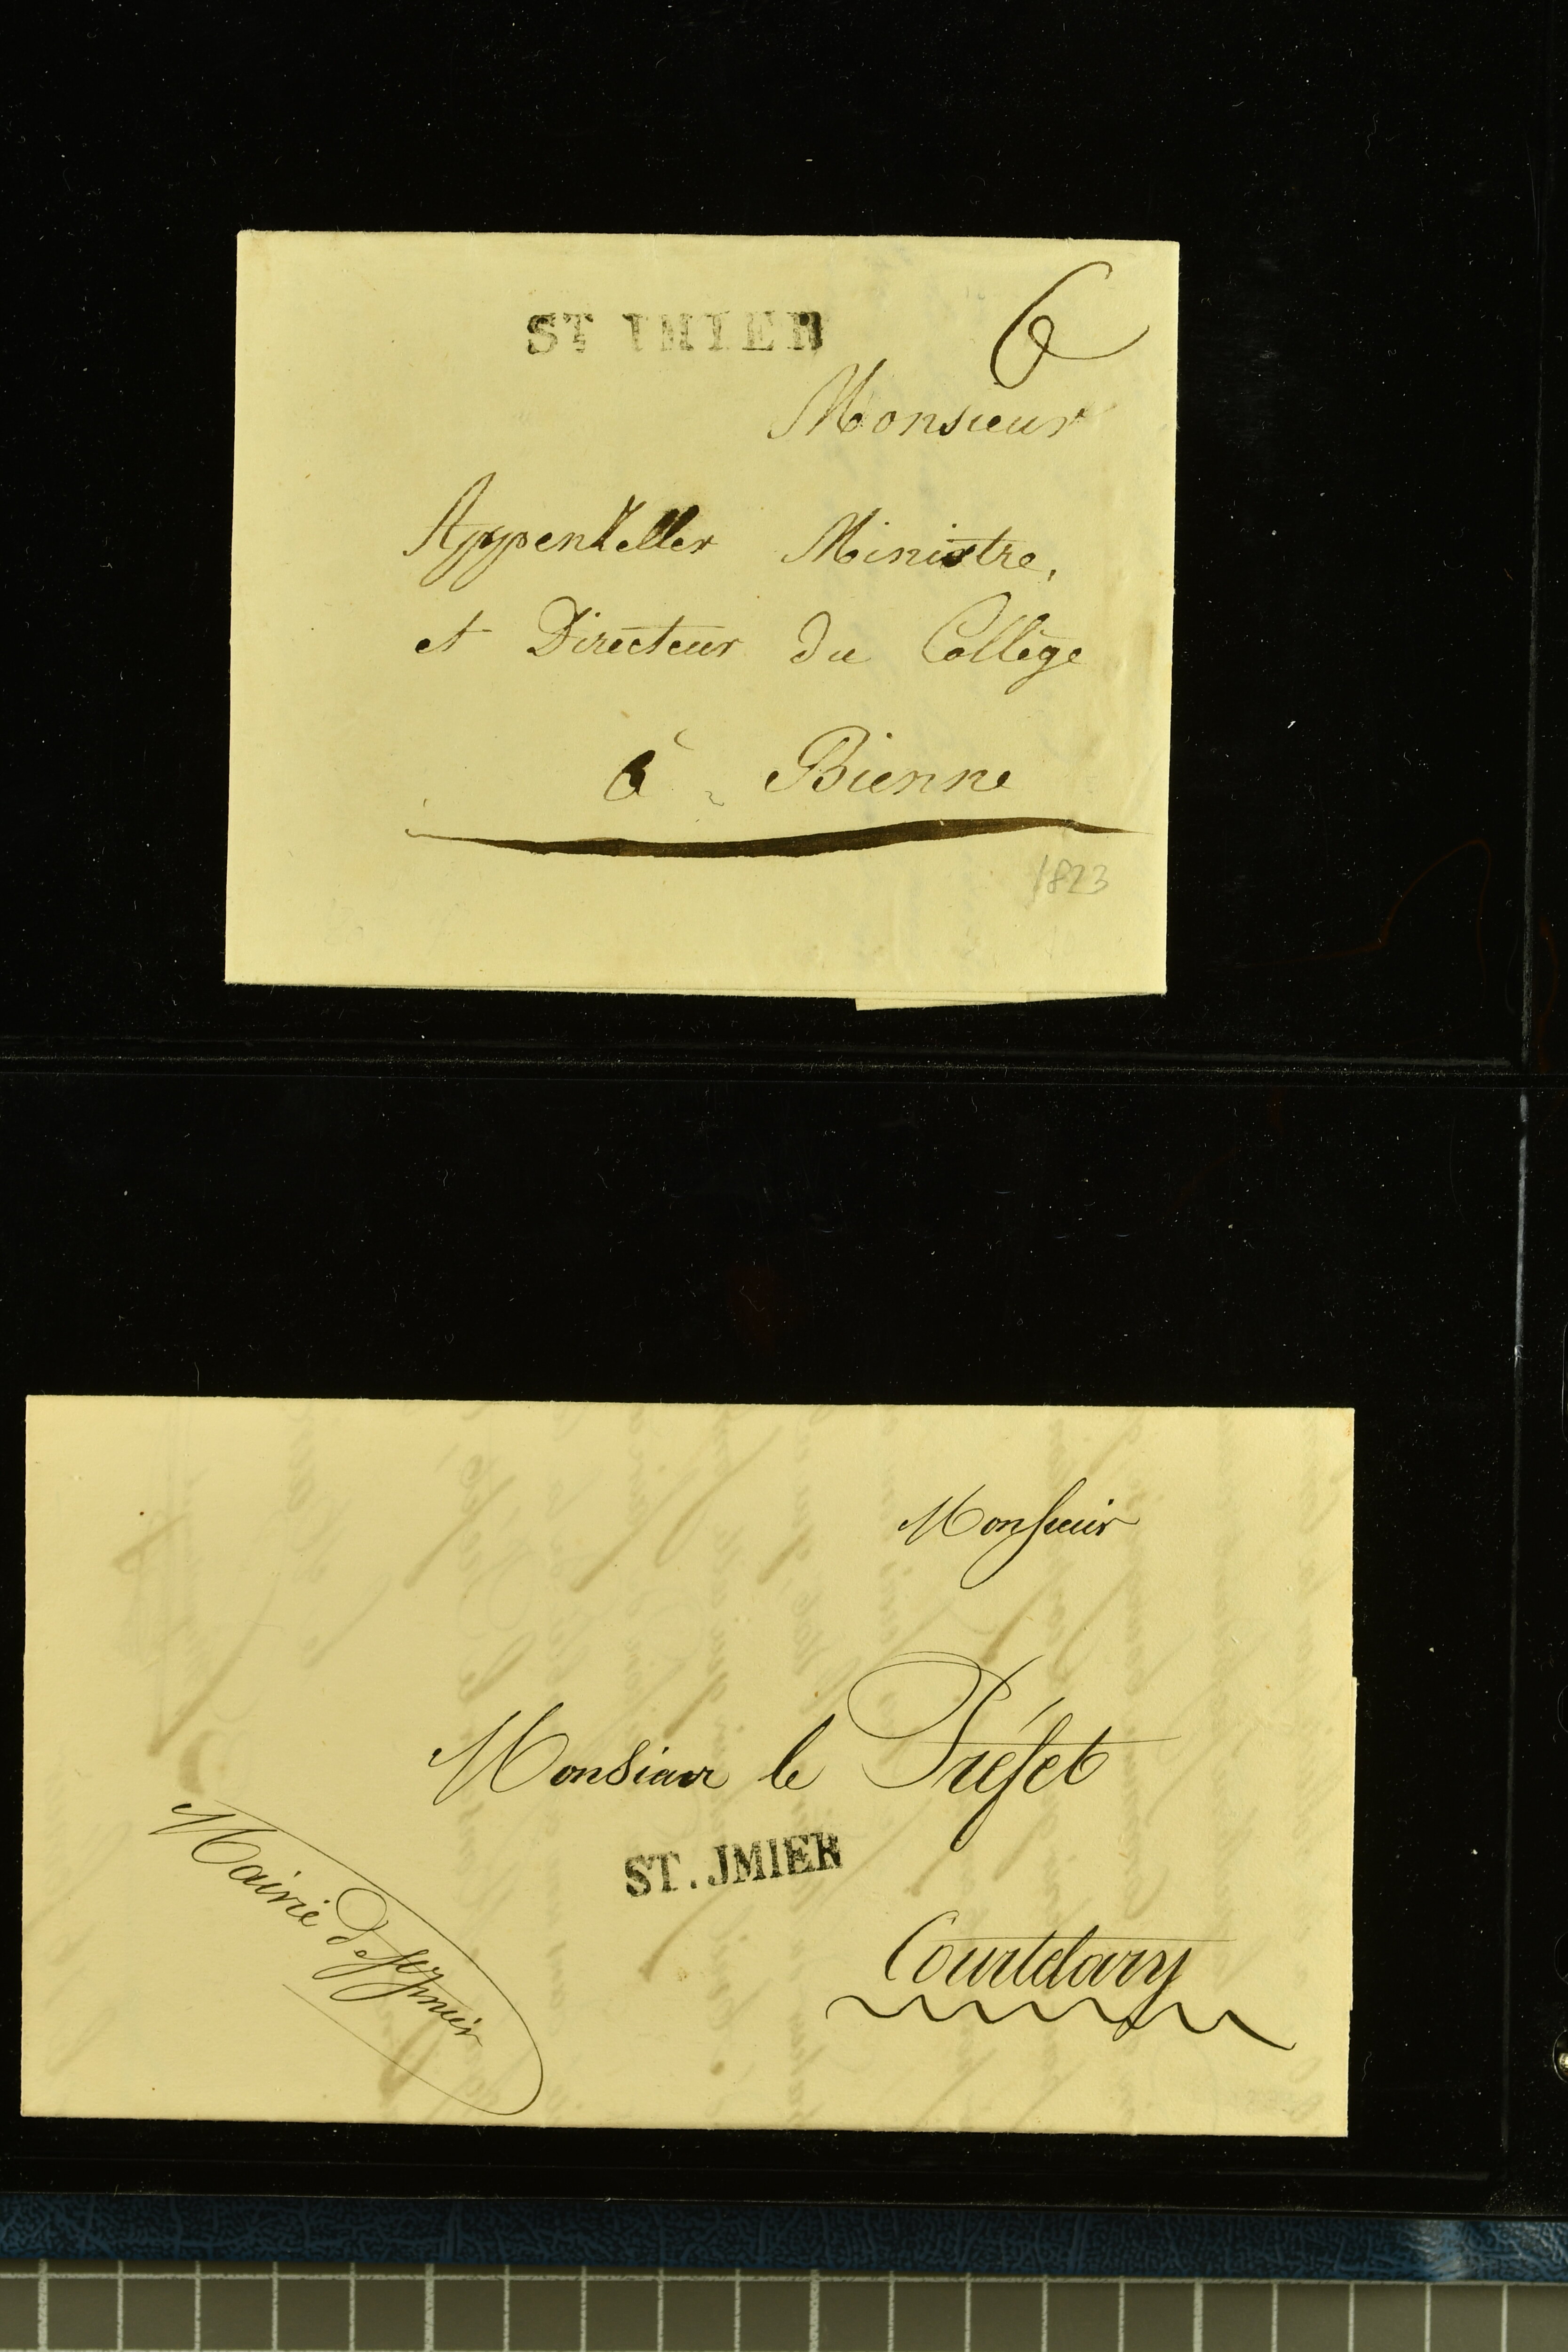 ST IMIER
6
Monsieur
Appenzeller Ministre,
et Directeur du Collège
à Bienne
1823
Monsieur
Monsieur le Préfet
ST. JMIER
Mairie de
Courtelary